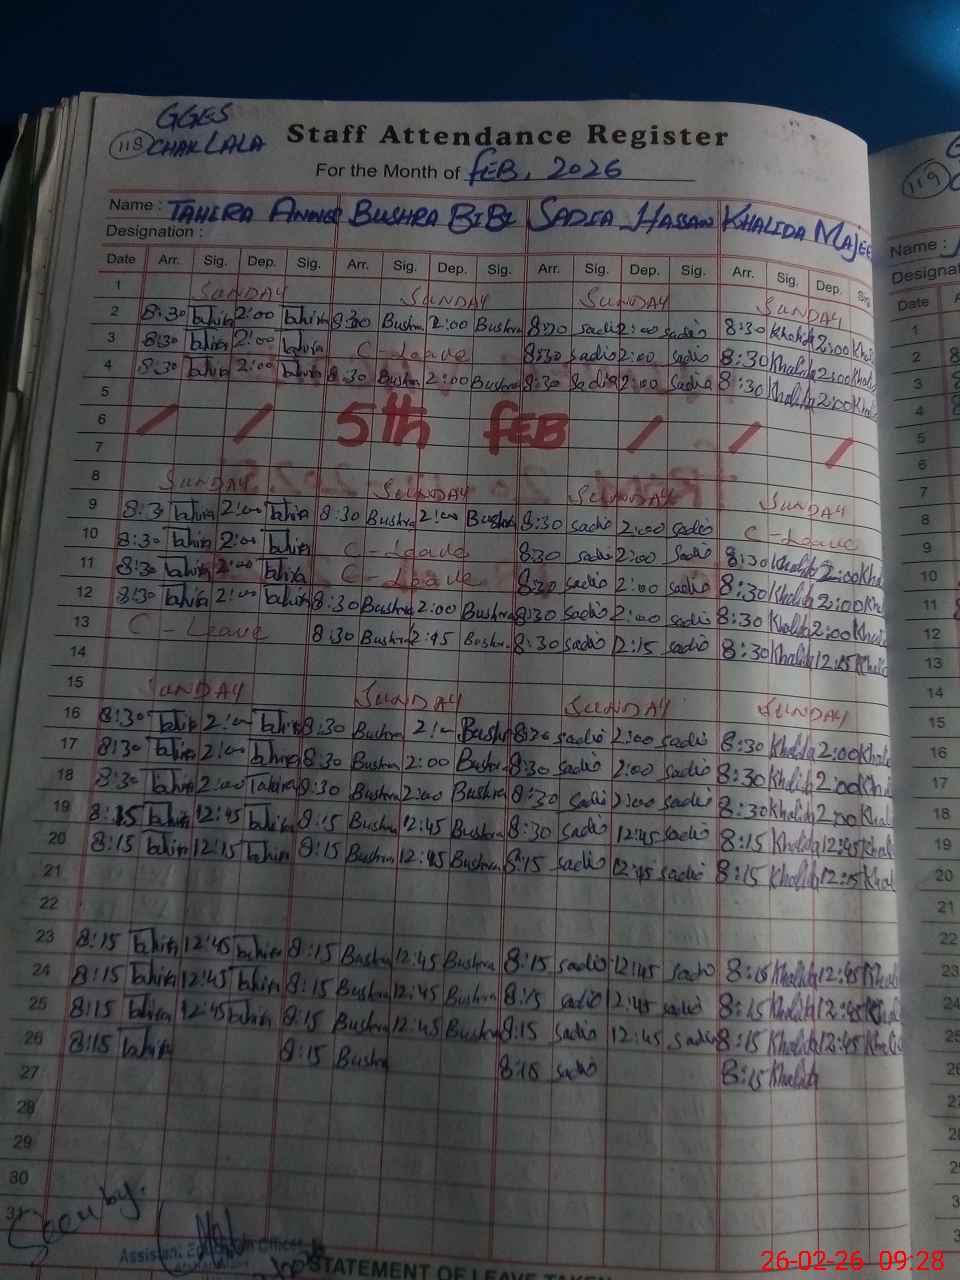 GGES
118 CHAKLALA Staff Attendance Register
For the Month of FEB, 2026
Name : TAHIRA BUSHRA BIBI SADIA HASSAN KHALIDA MAJEE
Designation :
Date Arr. Sig. Dep. Sig. Arr. Sig. Dep. Sig. Arr. Sig. Dep. Sig. Arr. Sig. Dep. Sig
1 SUNDAY SUNDAY SUNDAY SUNDAY
2 8:30 Tahira 2:00 Tahira 8:30 Bushra 2:00 Bushra 8:30 sadia 2:00 sadia 8:30 Khalida 2:00 Khal
3 8:30 Tahira 2:00 Tahira C-Leave 8:30 sadia 2:00 sadia 8:30 Khalida 2:00 Khalid
4 8:30 Tahira 2:00 Tahira 8:30 Bushra 2:00 Bushra 8:30 sadia 2:00 sadia 8:30 Khalida 2:00 Khal
5
6 / / 5th FEB / / /
7
8 SUNDAY SUNDAY SUNDAY SUNDAY
9 8:30 Tahira 2:00 Tahira 8:30 Bushra 2:00 Bushra 8:30 sadia 2:00 sadia C-Leave
10 8:30 Tahira 2:00 Tahira C-Leave 8:30 sadia 2:00 sadia 8:30 Khalida 2:00 Kha
11 8:30 Tahira 2:00 Tahira C-Leave 8:30 sadia 2:00 sadia 8:30 Khalida 2:00 Kha
12 8:30 Tahira 2:00 Tahira 8:30 Bushra 2:00 Bushra 8:30 sadia 2:00 sadia 8:30 Khalida 2:00 Khal
13 C-Leave 8:30 Bushra 12:45 Bushra 8:30 sadia 12:15 sadia 8:30 Khalida 12:15 Khal
14
15 SUNDAY SUNDAY SUNDAY SUNDAY
16 8:30 Tahira 2:00 Tahira 8:30 Bushra 2:00 Bushra 8:30 sadia 2:00 sadia 8:30 Khalida 2:00 Khal
17 8:30 Tahira 2:00 Tahira 8:30 Bushra 2:00 Bushra 8:30 sadia 2:00 sadia 8:30 Khalida 2:00 Kha
18 8:30 Tahira 2:00 Tahira 8:30 Bushra 2:00 Bushra 8:30 sadia 2:00 sadia 8:30 Khalida 2:00 Khal
19 8:15 Tahira 12:45 Tahira 8:15 Bushra 12:45 Bushra 8:30 sadia 12:45 sadia 8:15 Khalida 12:45 Khal
20 8:15 Tahira 12:15 Tahira 8:15 Bushra 12:45 Bushra 8:15 sadia 12:45 sadia 8:15 Khalida 12:15 Khal
21
22
23 8:15 Tahira 12:45 Tahira 8:15 Bushra 12:45 Bushra 8:15 sadia 12:45 sadia 8:15 Khalida 12:45 Khalid
24 8:15 Tahira 12:45 Tahira 8:15 Bushra 12:45 Bushra 8:15 sadia 12:45 sadia 8:15 Khalida 12:45 Khal
25 8:15 Tahira 12:45 Tahira 8:15 Bushra 12:45 Bushra 8:15 sadia 12:45 sadia 8:15 Khalida 12:45 Khalid
26 8:15 Tahira 8:15 Bushra 8:15 sadia 8:15 Khalida
27
28
29
30
31
Seen by:
STATEMENT OF LEAVE TAKEN
119
Name :
Designa
Date
1
2
3
4
5
6
7
8
9
10
11
12
13
14
15
16
17
18
19
20
21
22
23
24
25
26
26-02-26 09:28